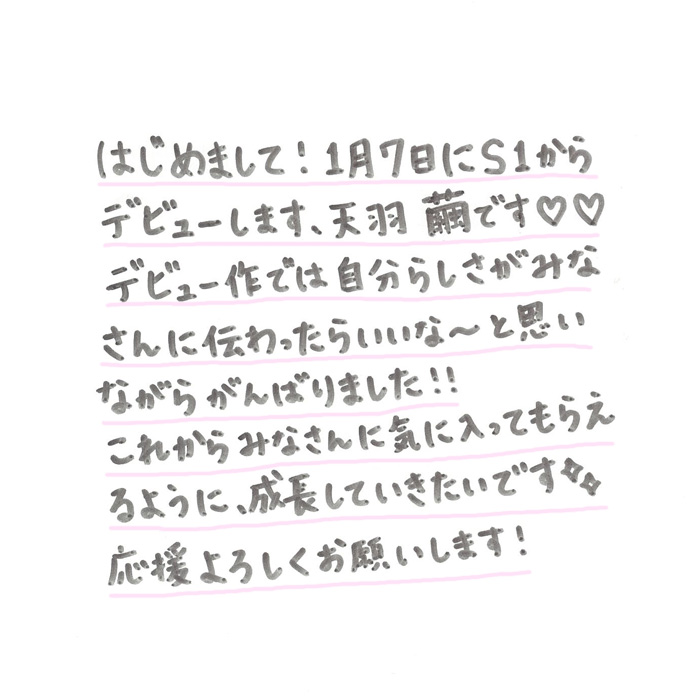 はじめまして!1月7日にS1から
デビューします、天羽 繭です♡♡
デビュー作では自分らしさがみな
さんに伝わったらいいな〜と思い
ながらがんばりました!!
これからみなさんに気に入ってもらえ
るように、成長していきたいです✨
応援よろしくお願いします!